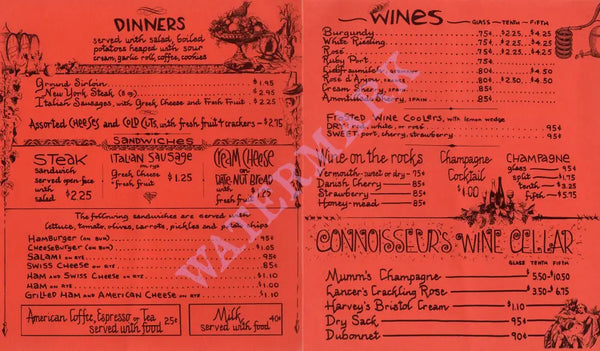 DINNERS
served with salad, boiled
potatoes heaped with sour
cream, garlic roll, coffee, cookies
Ground Sirloin $1.95
New York Steak (8 oz) $2.95
Italian Sausages, with Greek Cheese and Fresh Fruit $2.25
Assorted CHEESES and COLD CUTS, with fresh fruit & crackers - $2.75
SANDWICHES
STEAK
sandwich
served open-face
with
salad
$2.25
ITALIAN SAUSAGE
on rye
Greek Cheese
& Fresh Fruit
$1.25
CREAM CHEESE
on
DATE-NUT BREAD
with
fresh fruit
$1.
The following sandwiches are served with
lettuce, tomato, olives, carrots, pickles and potato chips
HAMBURGER (ON BUN) 95¢
CHEESEBURGER (ON BUN) $1.
SALAMI ON RYE 95¢
SWISS CHEESE ON RYE 85¢
HAM AND SWISS CHEESE ON RYE $1.10
HAM ON RYE $1.00
GRILLED HAM AND AMERICAN CHEESE ON RYE $1.10
American Coffee, Espresso or Tea 25¢
served with food
Milk 40¢
served with food
WINES
GLASS TENTH FIFTH
Burgundy .75¢ $2.25 $4.25
White Riesling .75¢ $2.25 $4.25
Rosé .75¢ $2.25 $4.25
Ruby Port .75¢
.80¢ $4.50
Rose d'Anjou .80¢ $2.50 $4.50
Cream Sherry, SPAIN .85¢
Amontillado Sherry, SPAIN .85¢
Frosted WINE COOLERS, with lemon wedge
DRY: red, white, or rosé 95¢
SWEET: port, sherry, strawberry 95¢
Wine on the rocks
Vermouth - sweet or dry - 75¢
Danish Cherry 85¢
Strawberry 85¢
Honey-mead 85¢
Champagne-
Cocktail
$1.00
CHAMPAGNE
glass 95¢
split $1.75
tenth $3.25
fifth $5.75
CONNOISSEUR'S WINE CELLAR
GLASS TENTH FIFTH
Mumm's Champagne $5.50-$10.50
Lancer's Crackling Rose $3.50-6.75
Harvey's Bristol Cream $1.10
Dry Sack 95¢
Dubonnet 90¢
WATERMARK